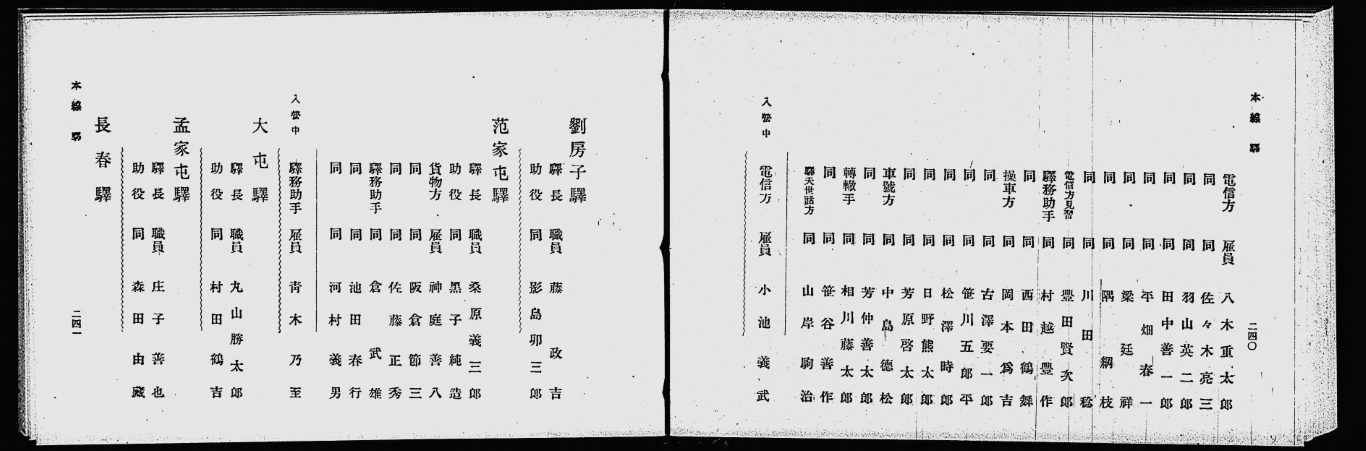 本線 驛
電信方 雇員 八木重太郎
同 同 佐々木亮三
同 同 羽山英二郎
同 同 田中善一郎
同 同 平畑春一
同 同 梁廷祥
同 同 隅綱枝
同 同 川田稔
電信方見習 同 豊田賢次郎
驛務助手 同 村越豊作
同 同 西田鶴舞
操車方 同 岡本爲吉
同 同 古澤要一郎
同 同 笹川五郎平
同 同 松澤時郎
同 同 日野熊太郎
同 同 芳原啓太郎
車號方 同 中島德松
同 同 芳仲善太郎
轉轍手 同 相川藤太郎
同 同 笹谷善作
驛夫世話方 同 山岸駒治
入營中 電信方 雇員 小池義武
二四〇
劉房子驛
驛長 職員 藤政吉
助役 同 影島卯三郎
范家屯驛
驛長 職員 桑原義三郎
助役 同 黑子純造
貨物方 雇員 神庭善八
同 同 阪倉節三
同 同 佐藤正秀
驛務助手 同 倉武雄
同 同 池田春行
同 同 河村義男
入營中 驛務助手 雇員 青木乃至
大屯驛
驛長 職員 丸山勝太郎
助役 同 村田鶴吉
孟家屯驛
驛長 職員 庄子善也
助役 同 森田由藏
長春驛
本線 驛
二四一